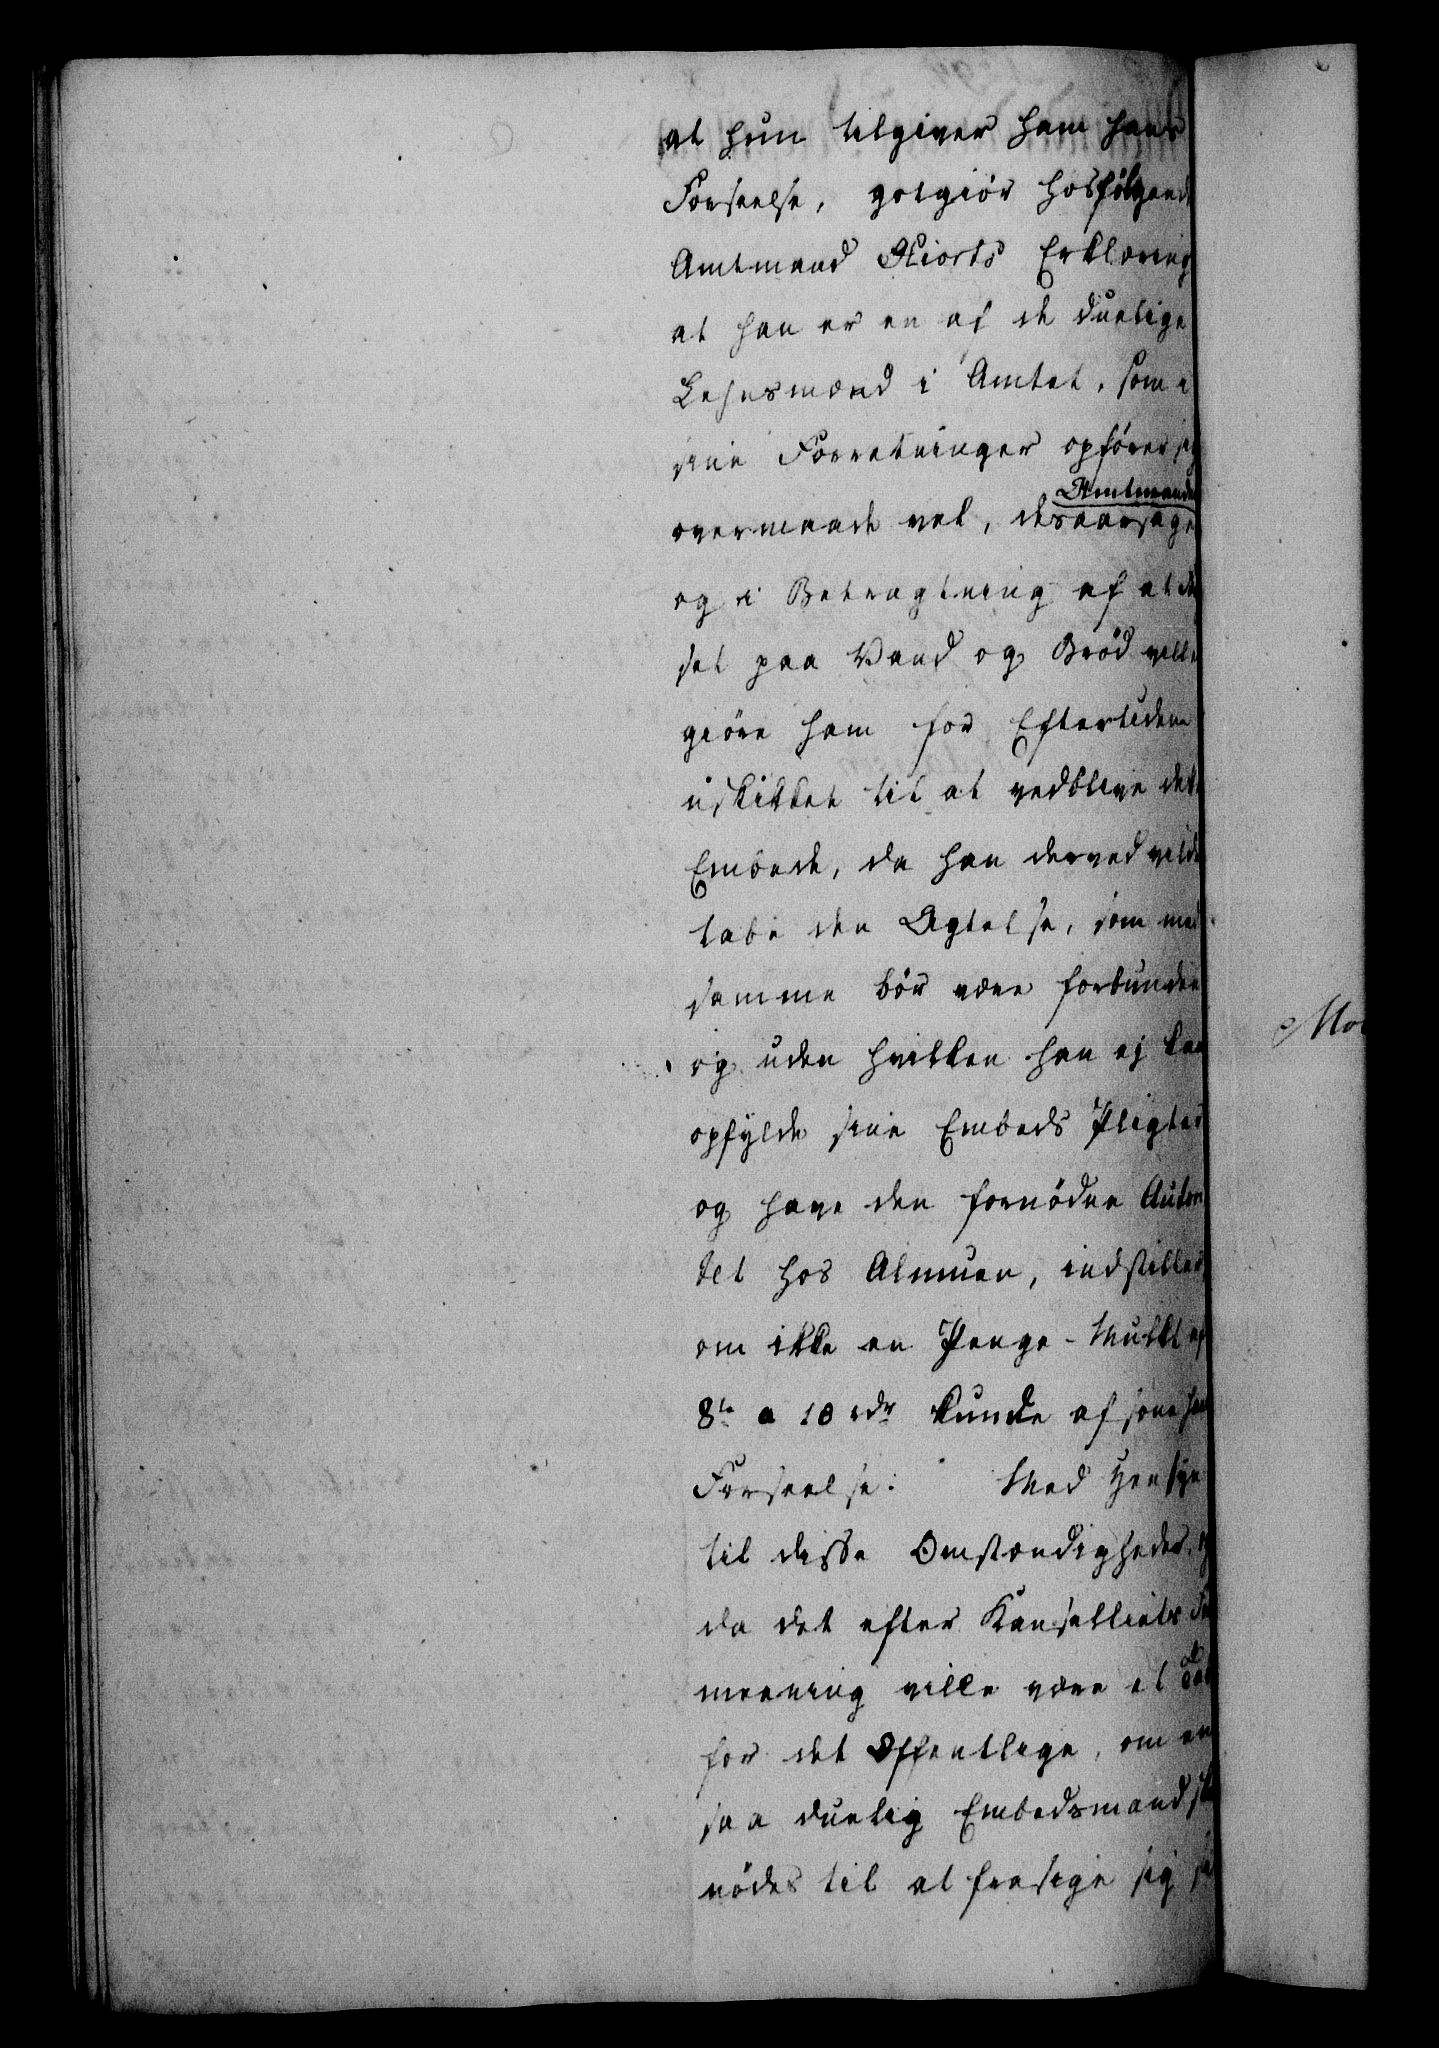 at hun tilgiver ham hans
Forseelse, gotgiör hosfölgende
Amtmand Hiorts Erklæring
at han er en af de duelige
Lehnsmænd i Amtet, som i
sine Forretninger opförer sig
overmaade vel, desaarsage
Amtmanden
og i Betragtning af at
set paa Vand og Bröd ville
giöre ham for Eftertiden
uskikket til at vedblive dette
Embede, da han derved vilde
tabe den Agtelse, som med
samme bör være forbunden
og uden hvilken han ej kan
opfylde sine Embeds Pligter
og have den fornödne Autori
tet hos Almuen, indstiller,
om ikke en Penge-Mulkt af
8te a 10 rdr kunde afsone hans
Forseelse. Med Hensyn
til disse Omstændigheder, og
da det efter Kanselliets For
meening ville være et Tab
for det Offentlige, om en
saa duelig Embedsmand
nödes til at frasige sig
Mo